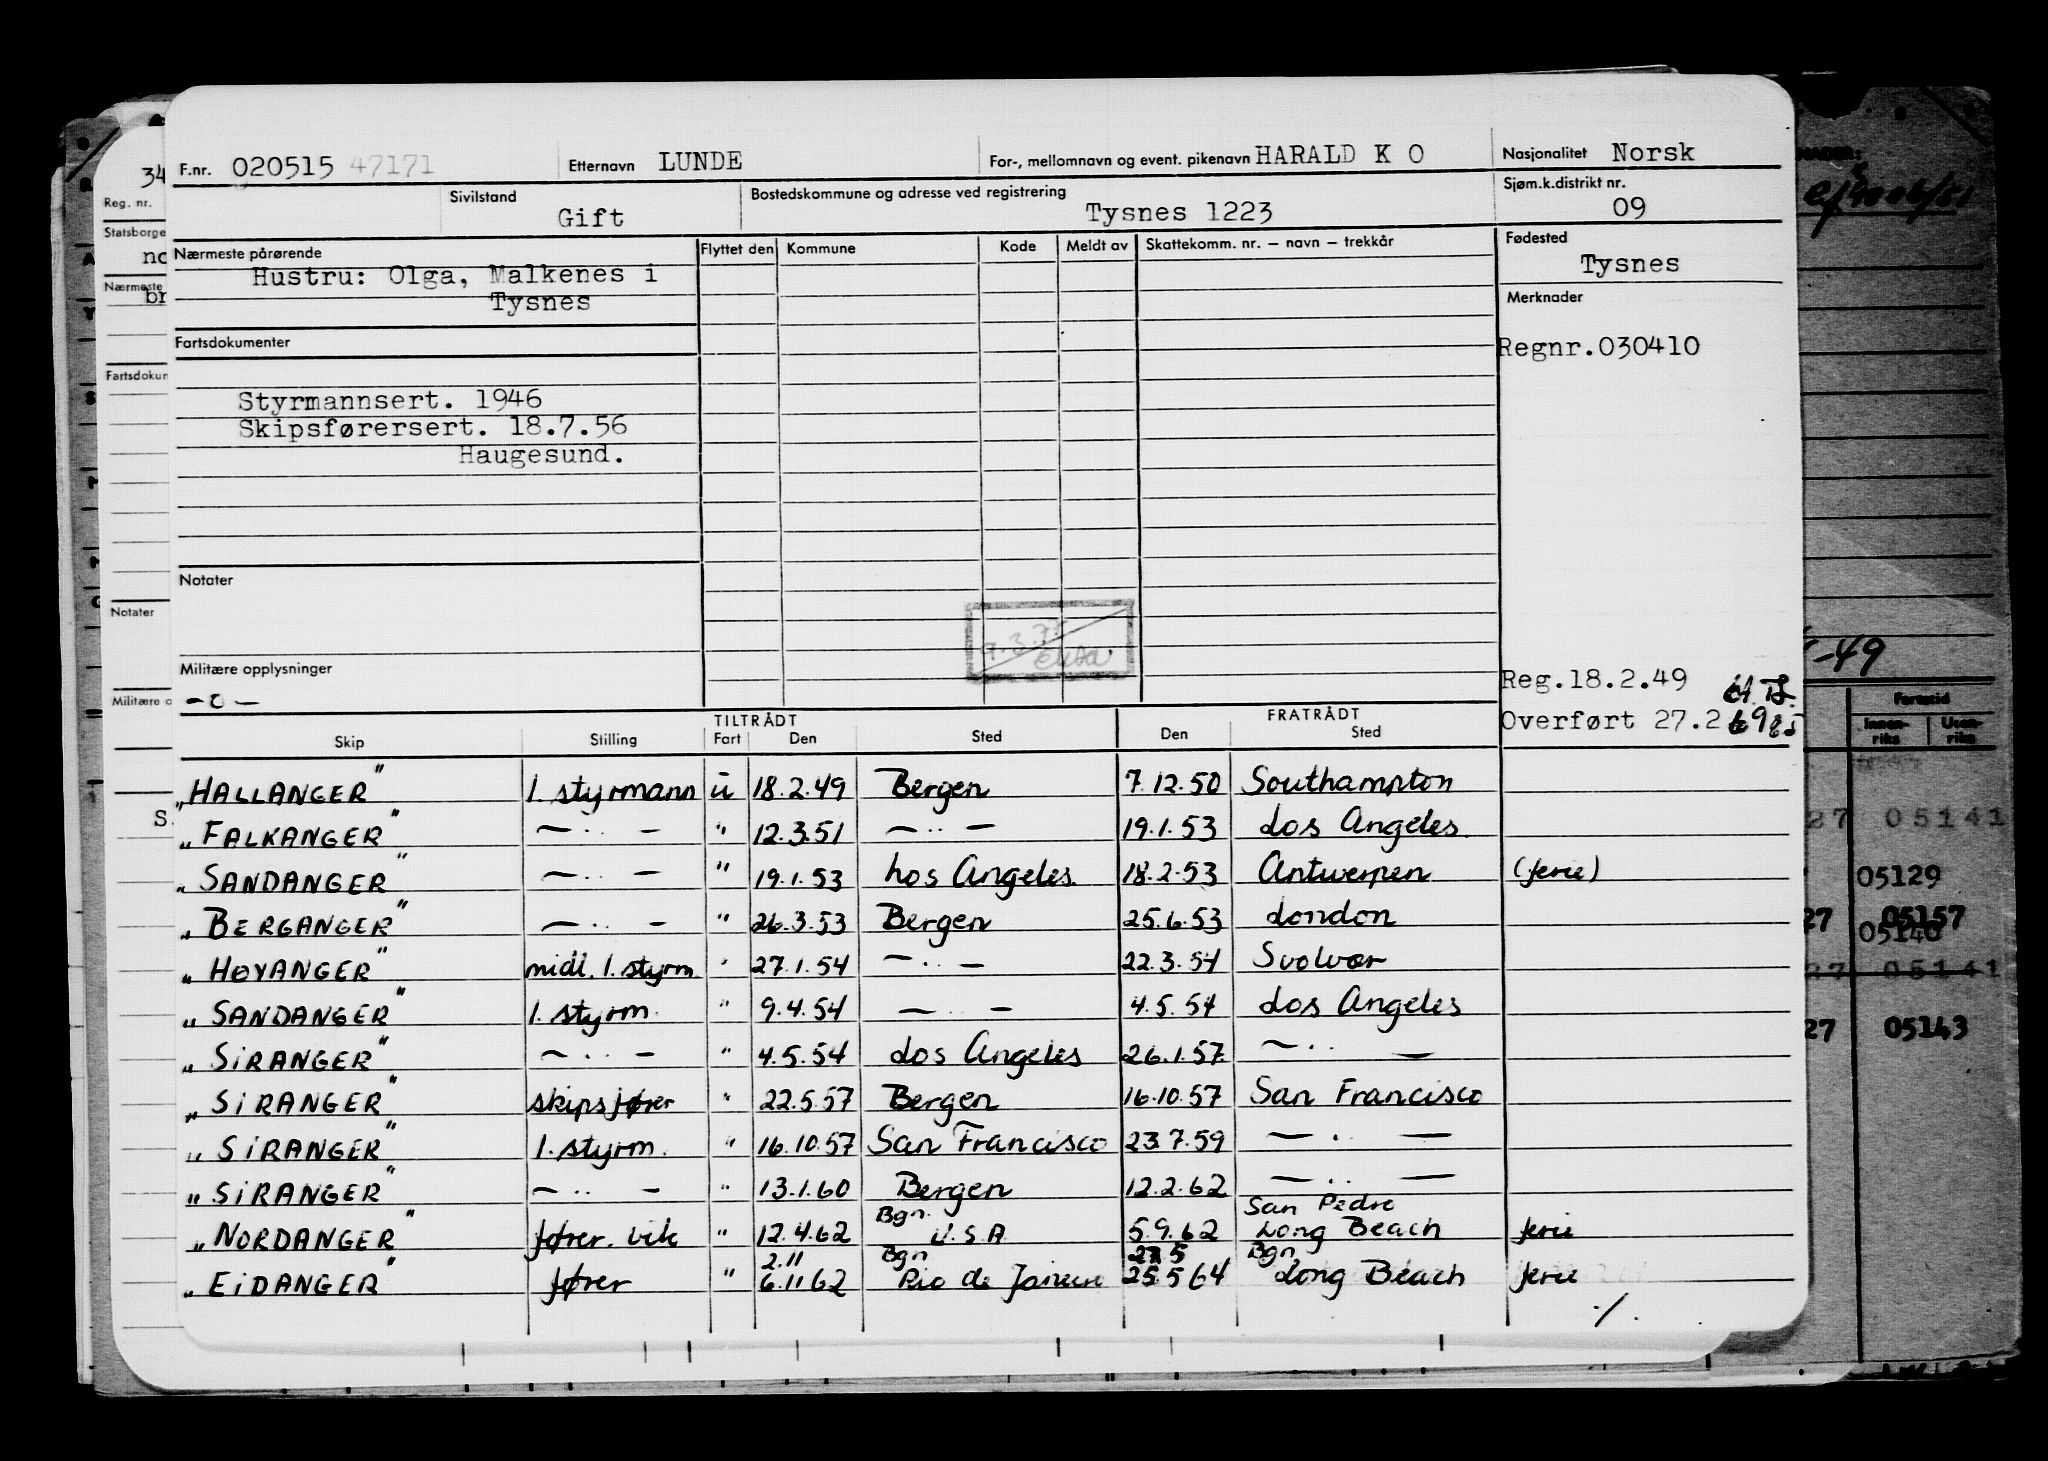 F.nr. 020515 47171 Etternavn LUNDE For-, mellomnavn og event. pikenavn HARALD K O Nasjonalitet Norsk
Sivilstand Gift Bostedskommune og adresse ved registrering Tysnes 1223 Sjøm.k.distrikt nr. 09
Nærmeste pårørende Flyttet den Kommune Kode Meldt av Skattekomm. nr. – navn – trekkår Fødested
Hustru: Olga, Malkenes i Tysnes
Tysnes
Merknader
Fartsdokumenter
Regnr.030410
Styrmannsert. 1946
Skipsførersert. 18.7.56
Haugesund.
Notater
Militære opplysninger
-o-
Reg.18.2.49
Overført 27.2
TILTRÅDT FRATRÅDT
Skip Stilling Fart Den Sted Den Sted
„HALLANGER" 1. styrmann ü 18.2.49 Bergen 7.12.50 Southampton
„FALKANGER" —..— " 12.3.51 —..— 19.1.53 Los Angeles
„SANDANGER" —..— " 19.1.53 Los Angeles 18.2.53 Antwerpen (ferie)
„BERGANGER" —..— " 26.3.53 Bergen 25.6.53 London
„HØYANGER" midl. 1. styrm " 27.1.54 —..— 22.3.54 Svolvær
„SANDANGER" 1. styrm. " 9.4.54 —..— 4.5.54 Los Angeles
„SiRANGER" —..— " 4.5.54 Los Angeles 26.1.57 —..—
„SiRANGER" skipsfører " 22.5.57 Bergen 16.10.57 San Francisco
„SiRANGER" 1. styrm. " 16.10.57 San Francisco 23.7.59 —.—
„SiRANGER" —..— " 13.1.60 Bergen 12.2.62 —..—
Bgn. San Pedro
„NORDANGER" fører. vik " 12.4.62 U.S.A. 5.9.62 Long Beach ferie
2.11 Bgn Bgn
„EiDANGER" fører " 6.11 62 Rio de Janeiro 25 5 64 Long Beach ferie
./.
34
Reg. nr.
Statsborge
no
Nærmeste
br
Fartsdokun
Notater
Militære o
S.
-49
Fartstid
Innen-riks Uten-riks
27 05141
05129
27 05157
05140
27 05141
27 05143